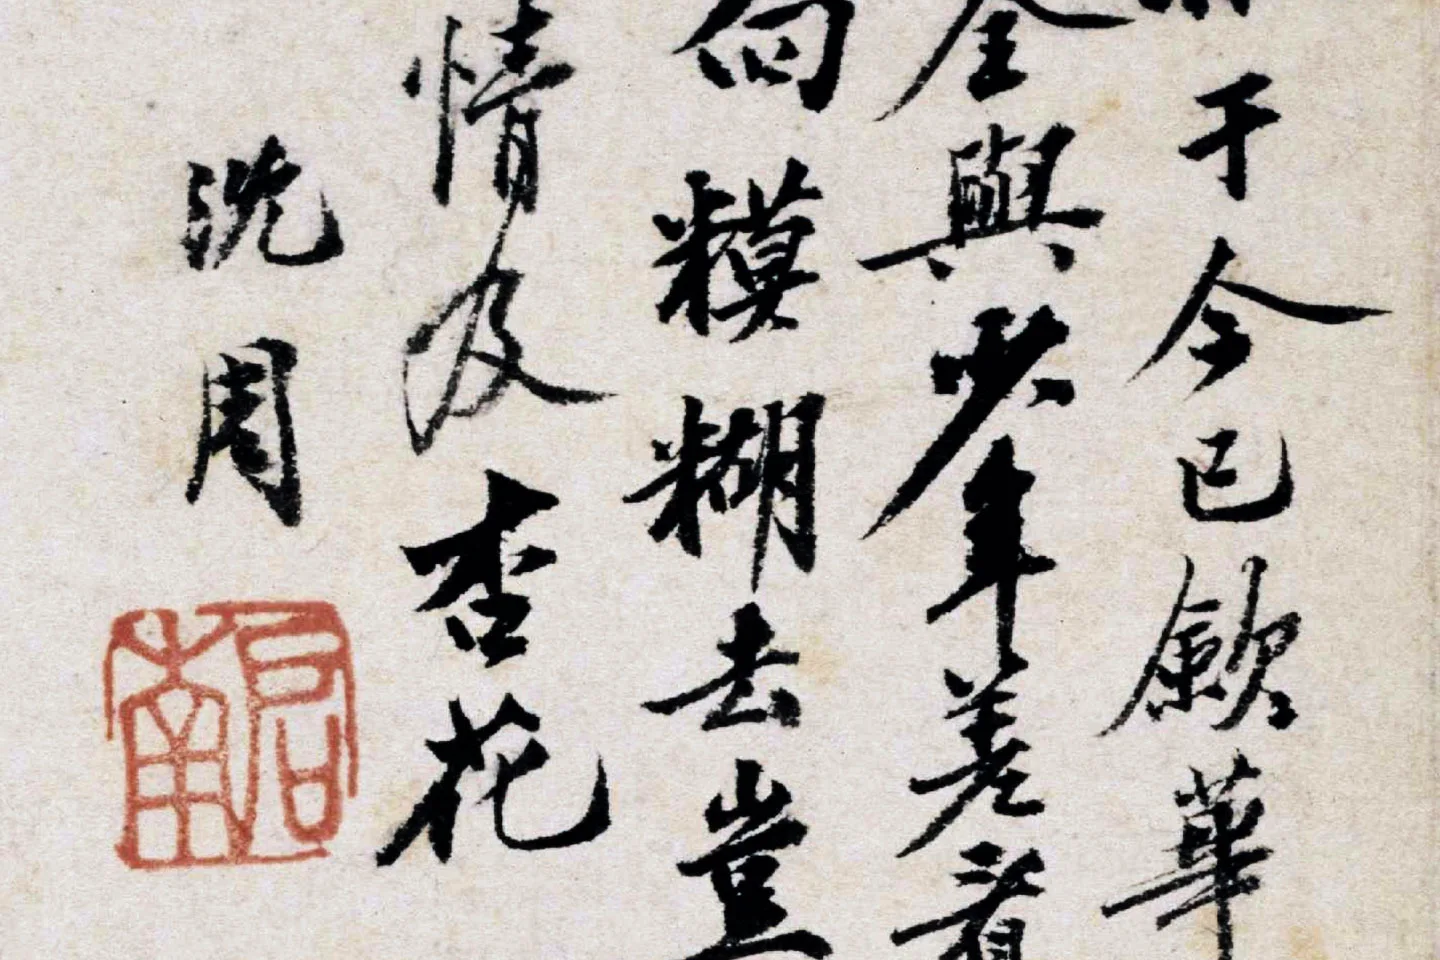 于今已歛華
全與少年差看
向糢糊去豈
情及杏花
沈周
啟南